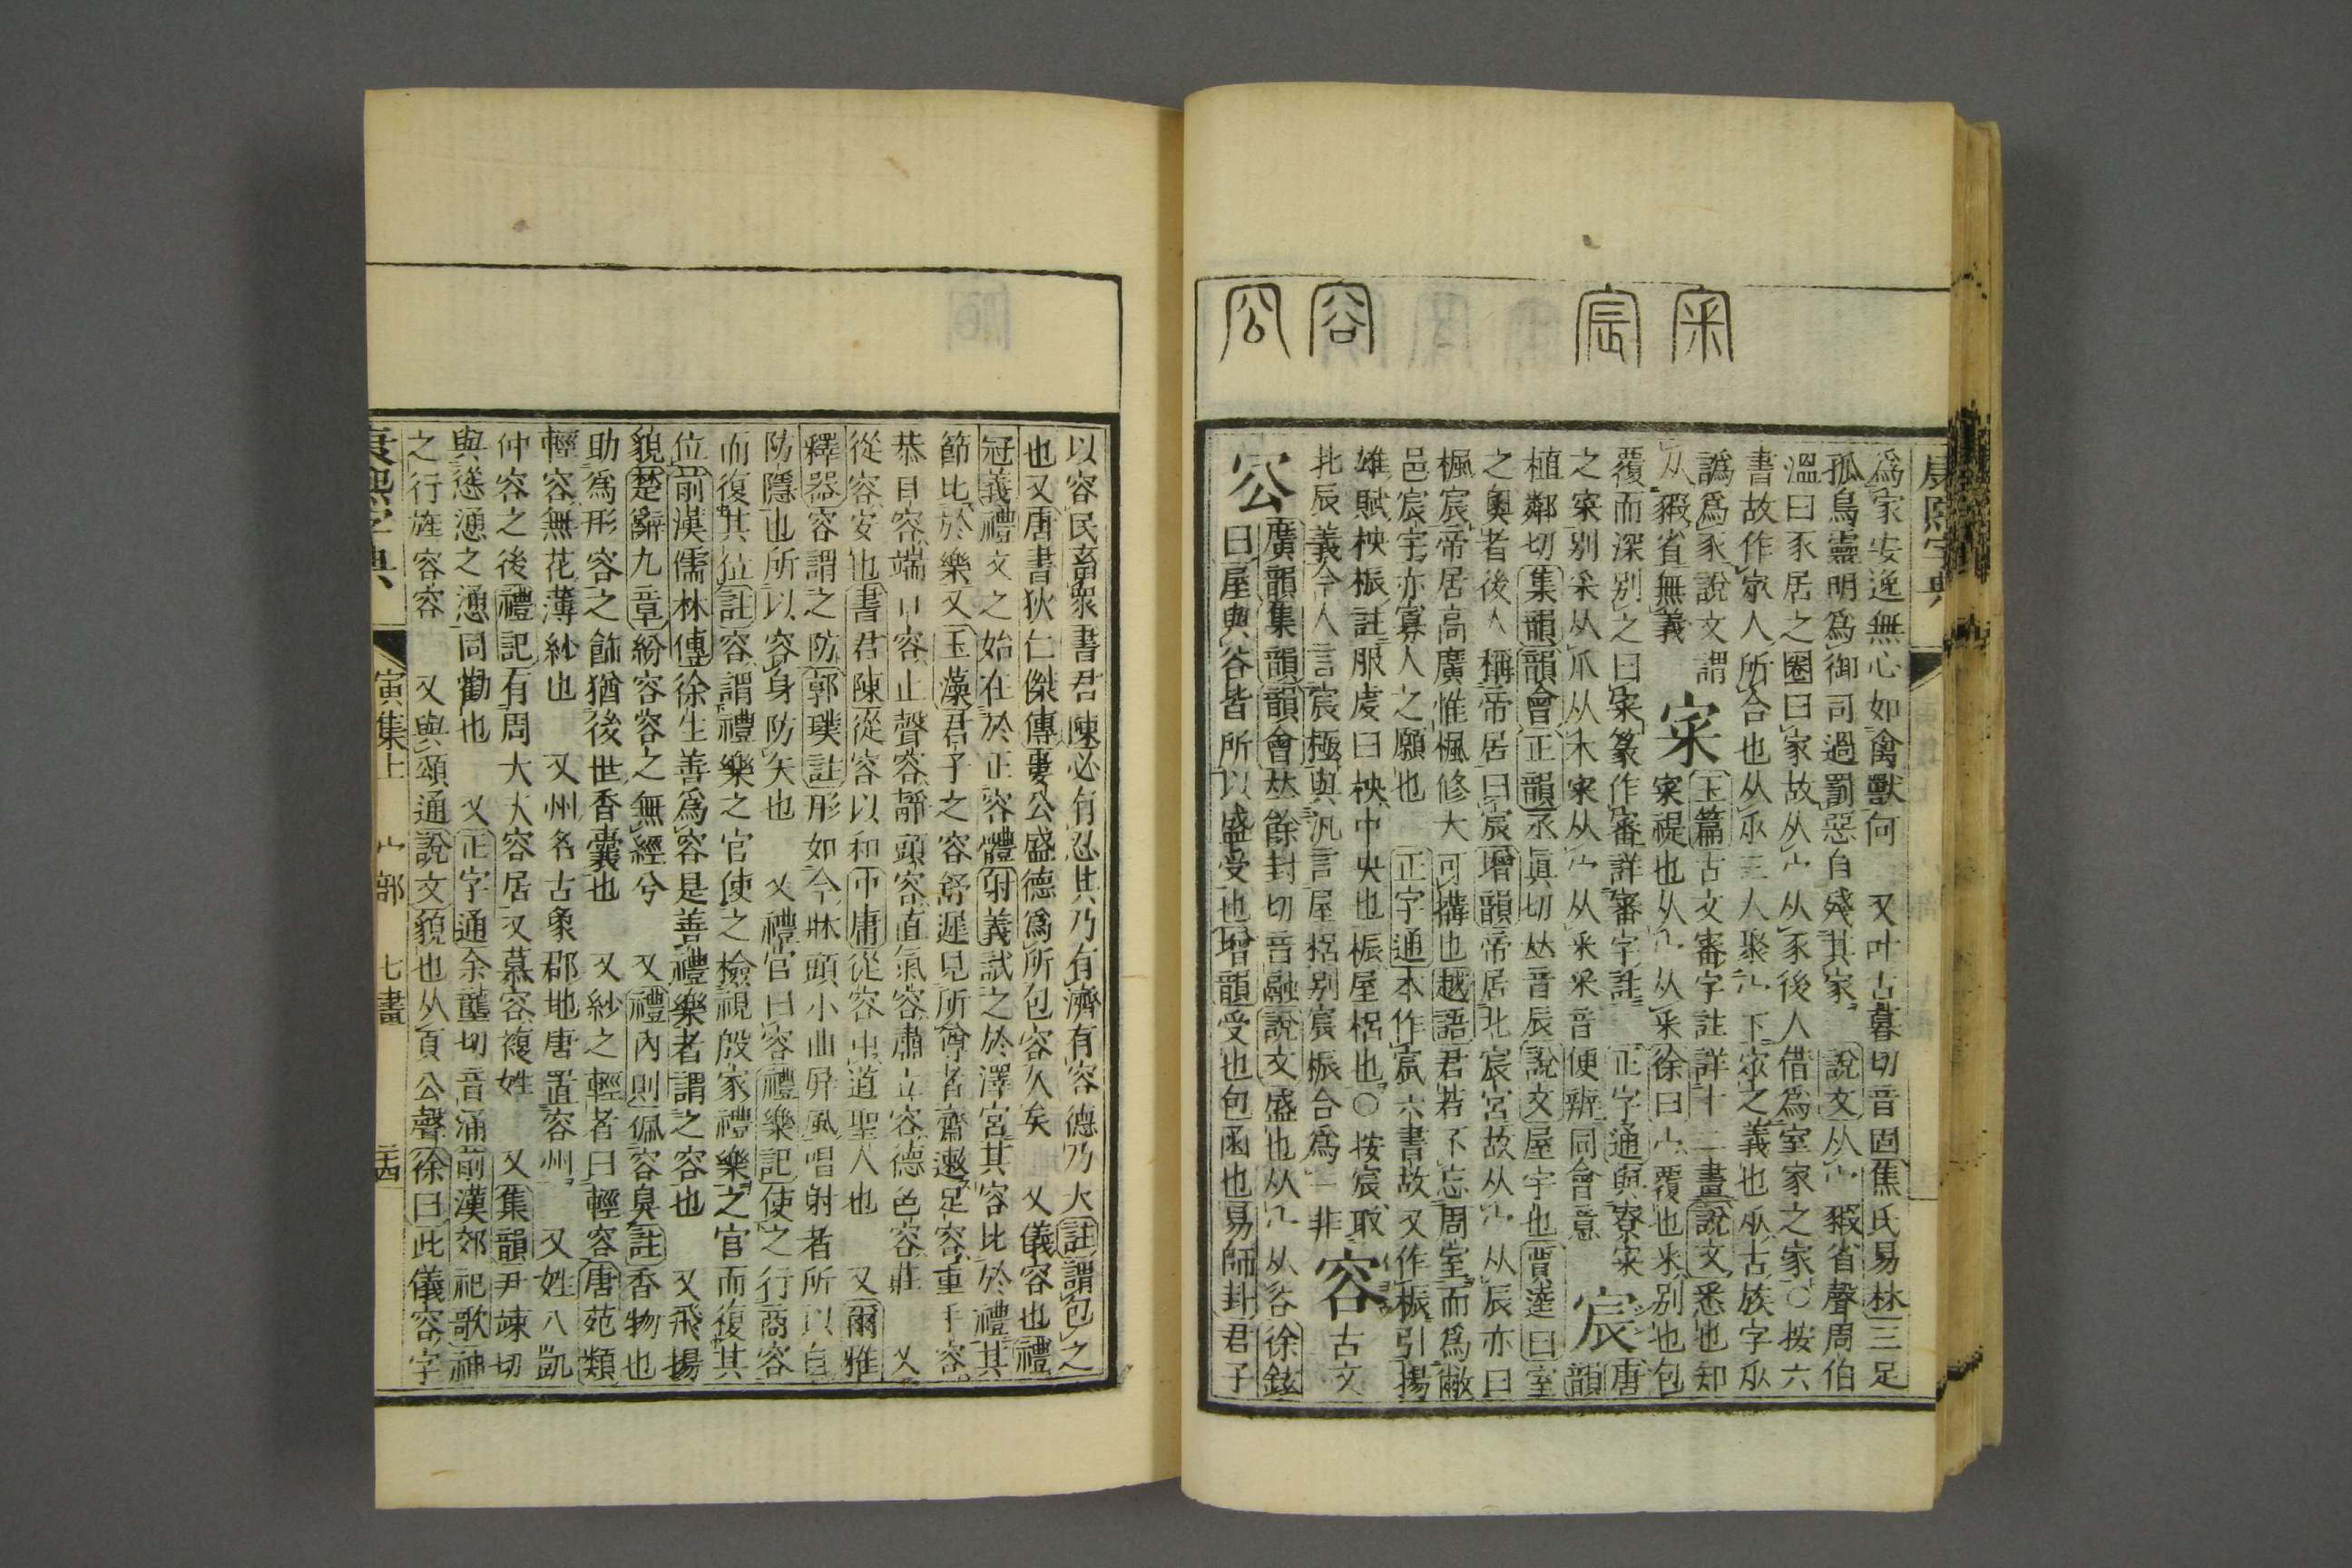 康熙字典
寀 宸 容 㝐
爲家安逸無心如禽獸何 又叶古暮切音固焦氏易林三足
孤烏靈明爲御司過罰惡自殘其家 說文从宀豭省聲周伯
溫曰豕居之圈曰家故从宀从豕後人借爲室家之家○按六
書故作㝒人所合也从㐺三人聚宀下㝒之義也㐺古族字㐺
譌爲豕說文謂
从豭省無義 寀 玉篇古文審字註詳十二畫說文悉也知
寀諟也从宀从釆徐曰宀覆也釆別也包
覆而深別之曰寀篆作審詳審字註 正字通與寮寀
之寀別采从爪从木寀从宀从釆釆音便辨同會意 宸 唐韻
植鄰切集韻韻會正韻丞眞切𠀤音辰說文屋宇也賈逵曰室
之奧者後人稱帝居曰宸增韻帝居北宸宮故从宀从辰亦曰
楓宸帝居高廣惟楓修大可構也越語君若不忘周室而爲敝
邑宸宇亦寡人之願也 正字通本作宸六書故又作桭引揚
雄賦柍桭註服虔曰柍中央也桭屋梠也○按宸取
北辰義今人言宸極與汎言屋梠別宸桭合爲一非 容 古文
㝐 廣韻集韻韻會𠀤餘封切音融說文盛也从宀从谷徐鉉
曰屋與谷皆所以盛受也增韻受也包函也易師卦君子
以容民畜衆書君陳必有忍其乃有濟有容德乃大註謂包之
也又唐書狄仁傑傳婁公盛德爲所包容久矣 又儀容也禮
冠義禮文之始在於正容體射義試之於澤宮其容比於禮其
節比於樂又玉藻君子之容舒遲見所尊者齊遬足容重手容
恭目容端口容止聲容靜頭容直氣容肅立容德色容莊 又
從容安也書君陳從容以和中庸從容中道聖人也 又爾雅
釋器容謂之防郭璞註形如今牀頭小曲屛風唱射者所以自
防隱也所以容身防矢也 又禮官曰容禮樂記使之行商容
而復其位註容謂禮樂之官使之檢視殷家禮樂之官而復其
位前漢儒林傳徐生善爲容是善禮樂者謂之容也 又飛揚
貌楚辭九章紛容容之無經兮 又禮內則佩容臭註香物也
助爲形容之飾猶後世香囊也 又紗之輕者曰輕容唐苑類
輕容無花薄紗也 又州名古象郡地唐置容州 又姓八凱
仲容之後禮記有周大夫容居又慕容複姓 又集韻尹竦切
與慫慂之慂同勸也 又正字通余壟切音涌前漢郊祀歌神
之行旌容容 又與頌通說文貌也从頁公聲徐曰此儀容字
康熙字典 寅集上 宀部 七畫